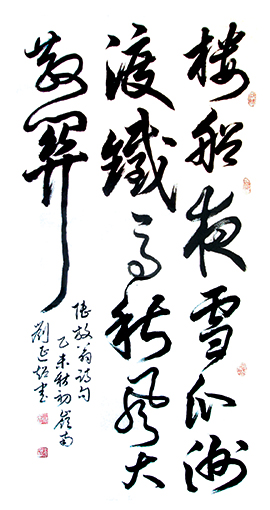 樓船夜雪瓜洲
渡鐵馬秋風大
散關
陸放翁詩句
乙未秋初嶺南
劉 書